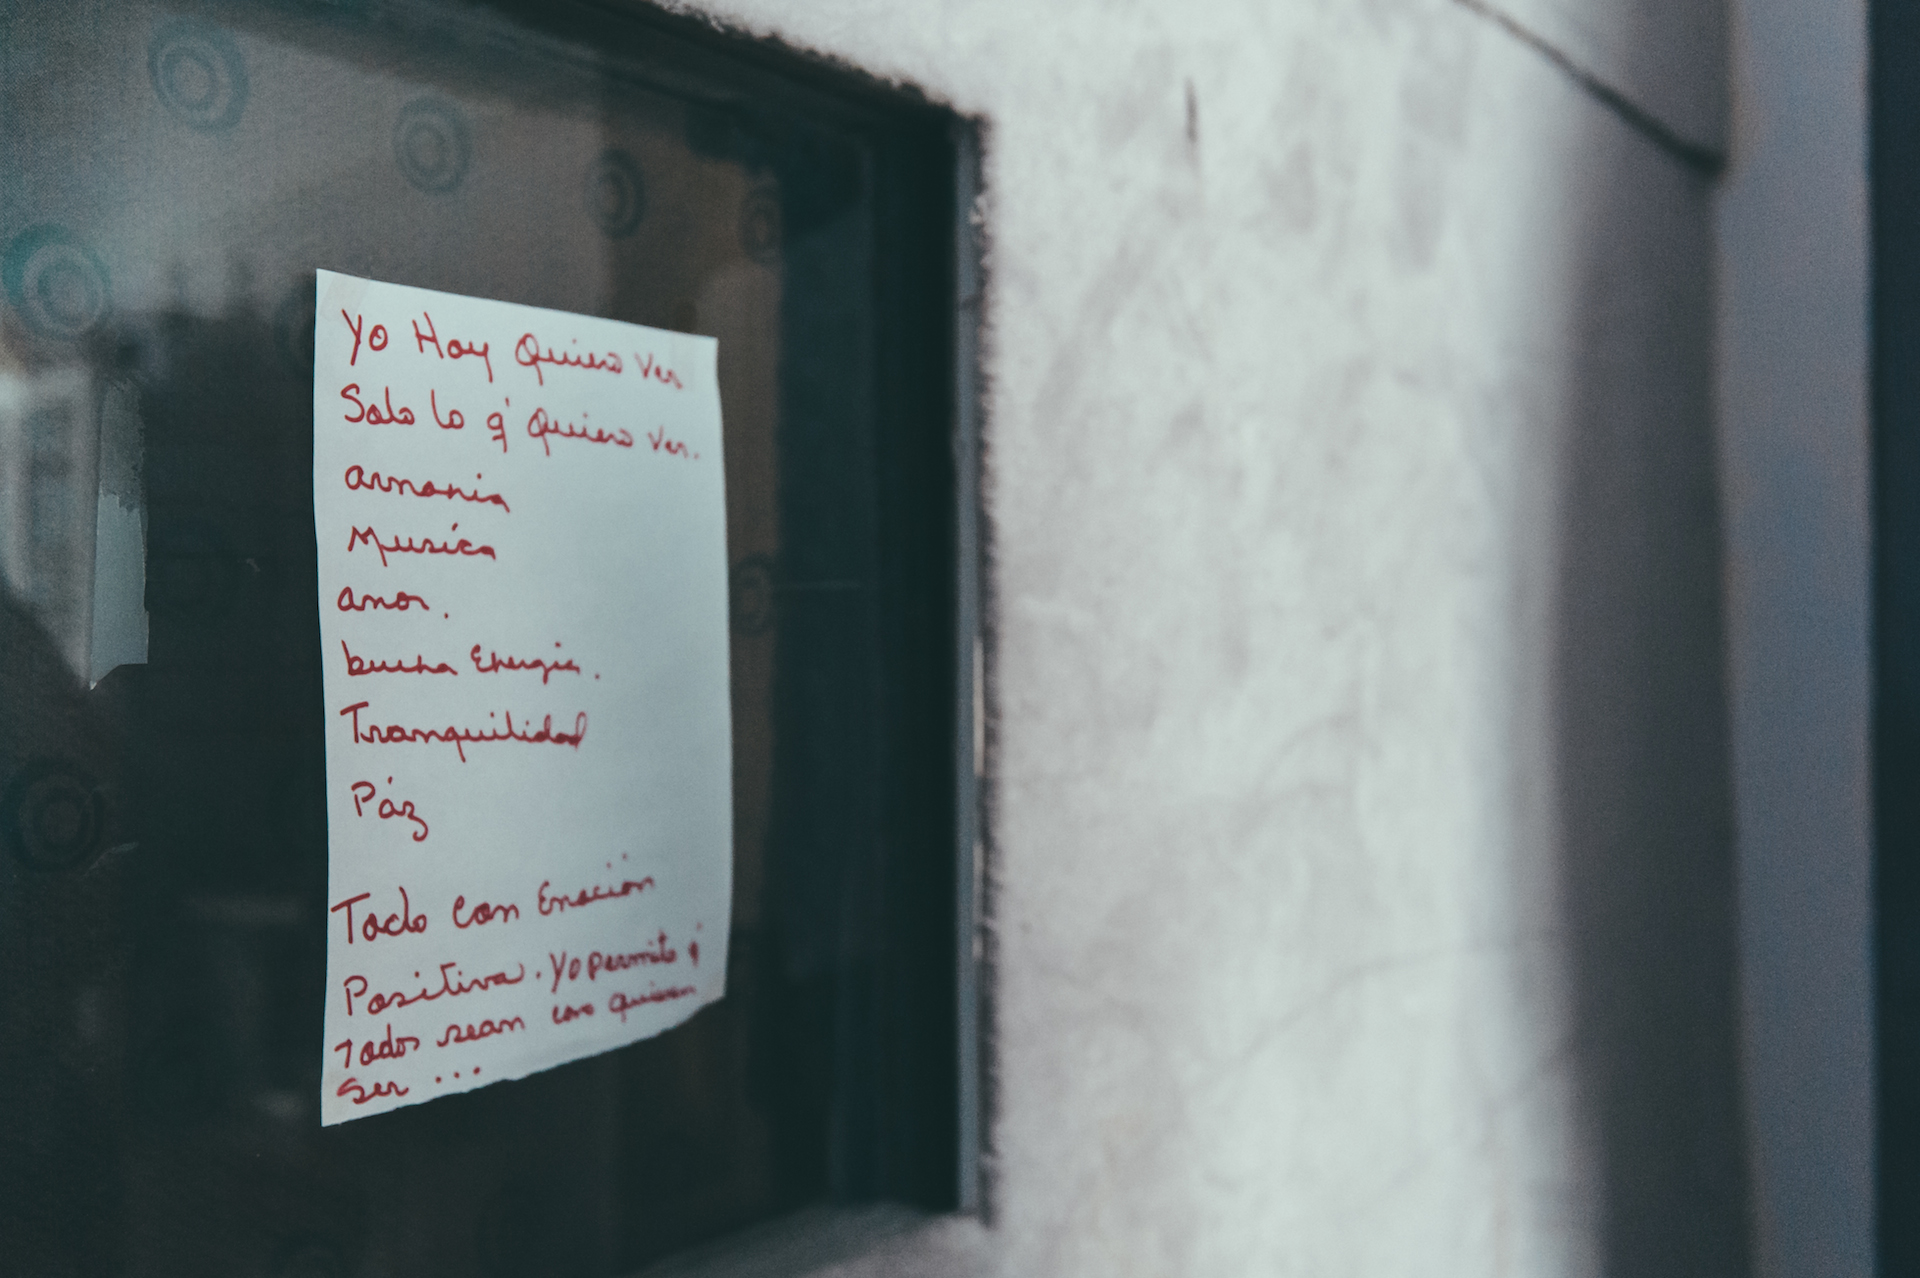 Yo Hoy Quiero Ver
Solo lo q' Quiero Ver.
armonia
Musica
amor.
buena Energia.
Tranquilidad
Páz
Todo Con Emoción
Positiva. Yo permito q'
Todos sean como quieran
Ser ...